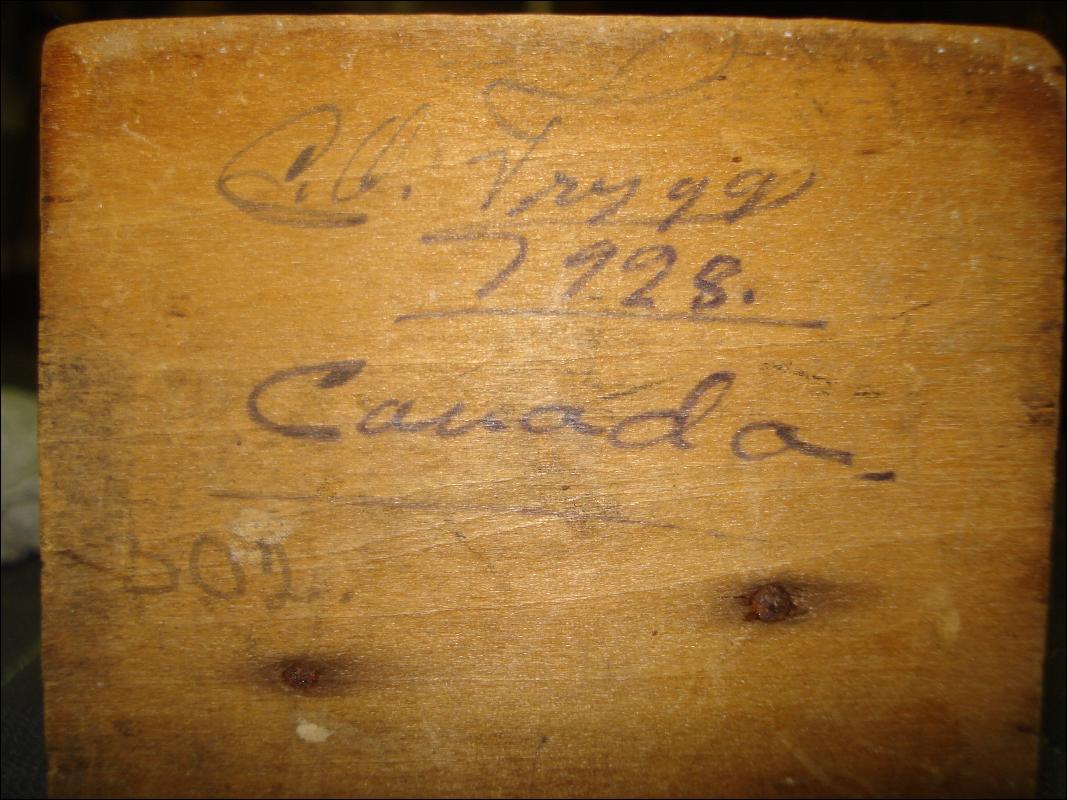 C.O. Trygg
1928.
Canada.